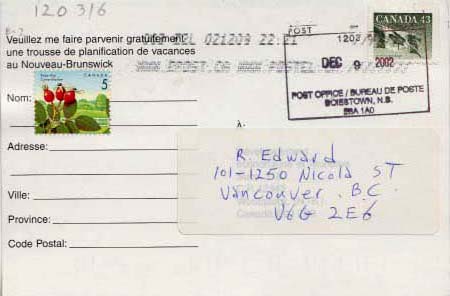 120 3/6
Veuillez me faire parvenir gratuitement
une trousse de planification de vacances
au Nouveau-Brunswick
021209 22:21
CANADA 43
POST
1202
DEC 9 2002
POST OFFICE / BUREAU DE POSTE
BOIESTOWN, N.B.
E6A 1A0
CANADA
5
Nom:
À:
Adresse:
R. Edward
101-1250 Nicola ST
Vancouver B.C.
V6G 2E6
Ville:
Province:
Code Postal: